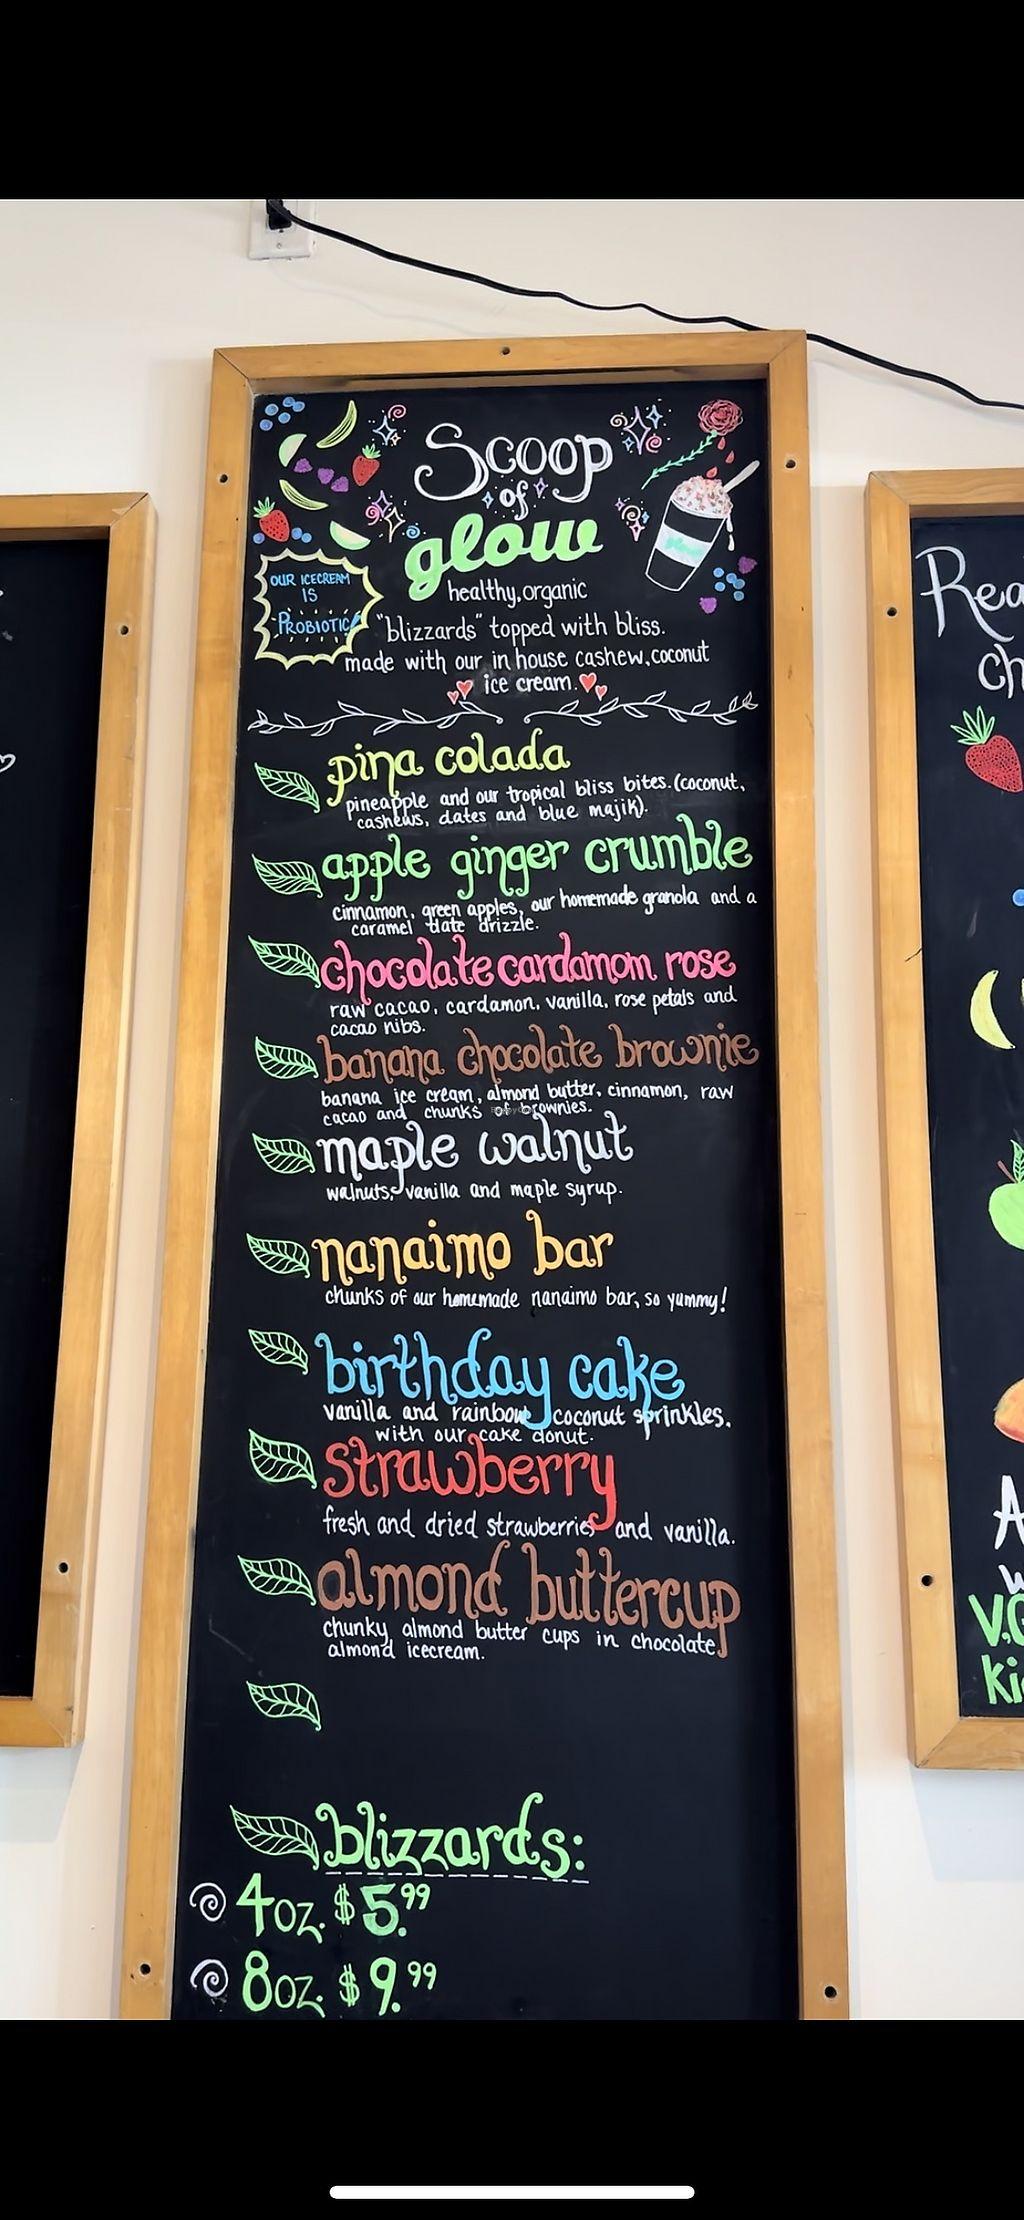 Scoop
of
glow
healthy, organic
OUR ICECREAM
IS
PROBIOTIC!
"blizzards" topped with bliss.
made with our in house cashew, coconut
ice cream.
pina colada
pineapple and our tropical bliss bites. (coconut,
cashews, dates and blue majik).
apple ginger crumble
cinnamon, green apples, our homemade granola and a
caramel date drizzle.
chocolate cardamom rose
raw cacao, cardamon, vanilla, rose petals and
cacao nibs.
banana chocolate brownie
banana ice cream, almond butter, cinnamon, raw
cacao and chunks of brownies.
maple walnut
walnuts, vanilla and maple syrup.
nanaimo bar
chunks of our homemade nanaimo bar, so yummy!
birthday cake
vanilla and rainbow coconut sprinkles.
with our cake donut.
strawberry
fresh and dried strawberries and vanilla.
almond buttercup
chunky almond butter cups in chocolate
almond icecream.
blizzards:
4oz. $5.99
8oz. $9.99
Rea
ch
A
w
V.G
Ki